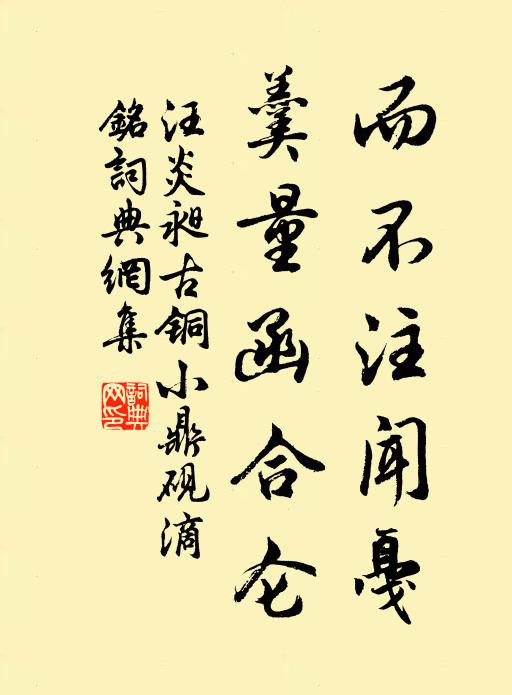 而不注闻戛
羹量函合仑
汪炎昶古铜小鼎砚滴
銘詞典網集
詞典網印